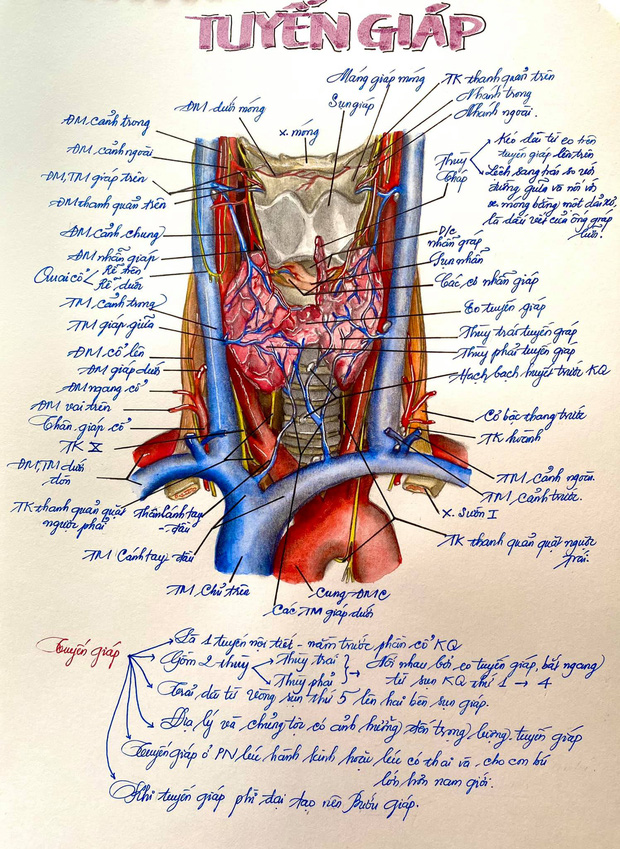 TUYẾN GIÁP
Màng giáp móng
TK thanh quản trên
Nhánh trong
Nhánh ngoài.
ĐM dưới móng
Sụn giáp
x. móng
ĐM cảnh trong
ĐM cảnh ngoài
ĐM, TM giáp trên
ĐM thanh quản trên
ĐM cảnh chung
ĐM nhẫn giáp
Quai cổ
Rễ trên
Rễ dưới
TM cảnh trong
TM giáp giữa
ĐM cổ lên
ĐM giáp dưới
ĐM ngang cổ
ĐM vai trên
Thân giáp cổ
TK X
ĐM, TM dưới đòn
TK thanh quản quặt
người phải
Thân cánh tay
- đầu
TM Cánh tay đầu
TM Chủ trên
Cung ĐMC
Các TM giáp dưới
Thùy
tháp
Kéo dài từ eo trên
tuyến giáp lên trên
Lệch sang trái so với
đường giữa và nối với
x. móng bằng một dải xơ,
là dấu vết của ống giáp
lưỡi.
D/c
nhẫn giáp
Sụn nhẫn
Các cơ nhẫn giáp
Eo tuyến giáp
Thùy trái tuyến giáp
Thùy phải tuyến giáp
Hạch bạch huyết trước KQ
Cơ bậc thang trước
TK hoành
TM cảnh ngoài.
TM cảnh trước.
x. Sườn I
TK thanh quản quặt ngược
trái.
Tuyến giáp
Là 1 tuyến nội tiết - nằm trước phần cổ KQ
Gồm 2 thùy
Thùy trái
Thùy phải
Nối nhau bởi eo tuyến giáp, bắt ngang
từ sụn KQ thứ 1 → 4
Trải dài từ vòng sụn thứ 5 lên hai bên sụn giáp.
Địa lý và chủng tộc có ảnh hưởng đến trọng lượng tuyến giáp
Tuyến giáp ở PN lúc hành kinh hoặc lúc có thai và cho con bú
lớn hơn nam giới.
Khi tuyến giáp phì đại tạo nên Bướu giáp.